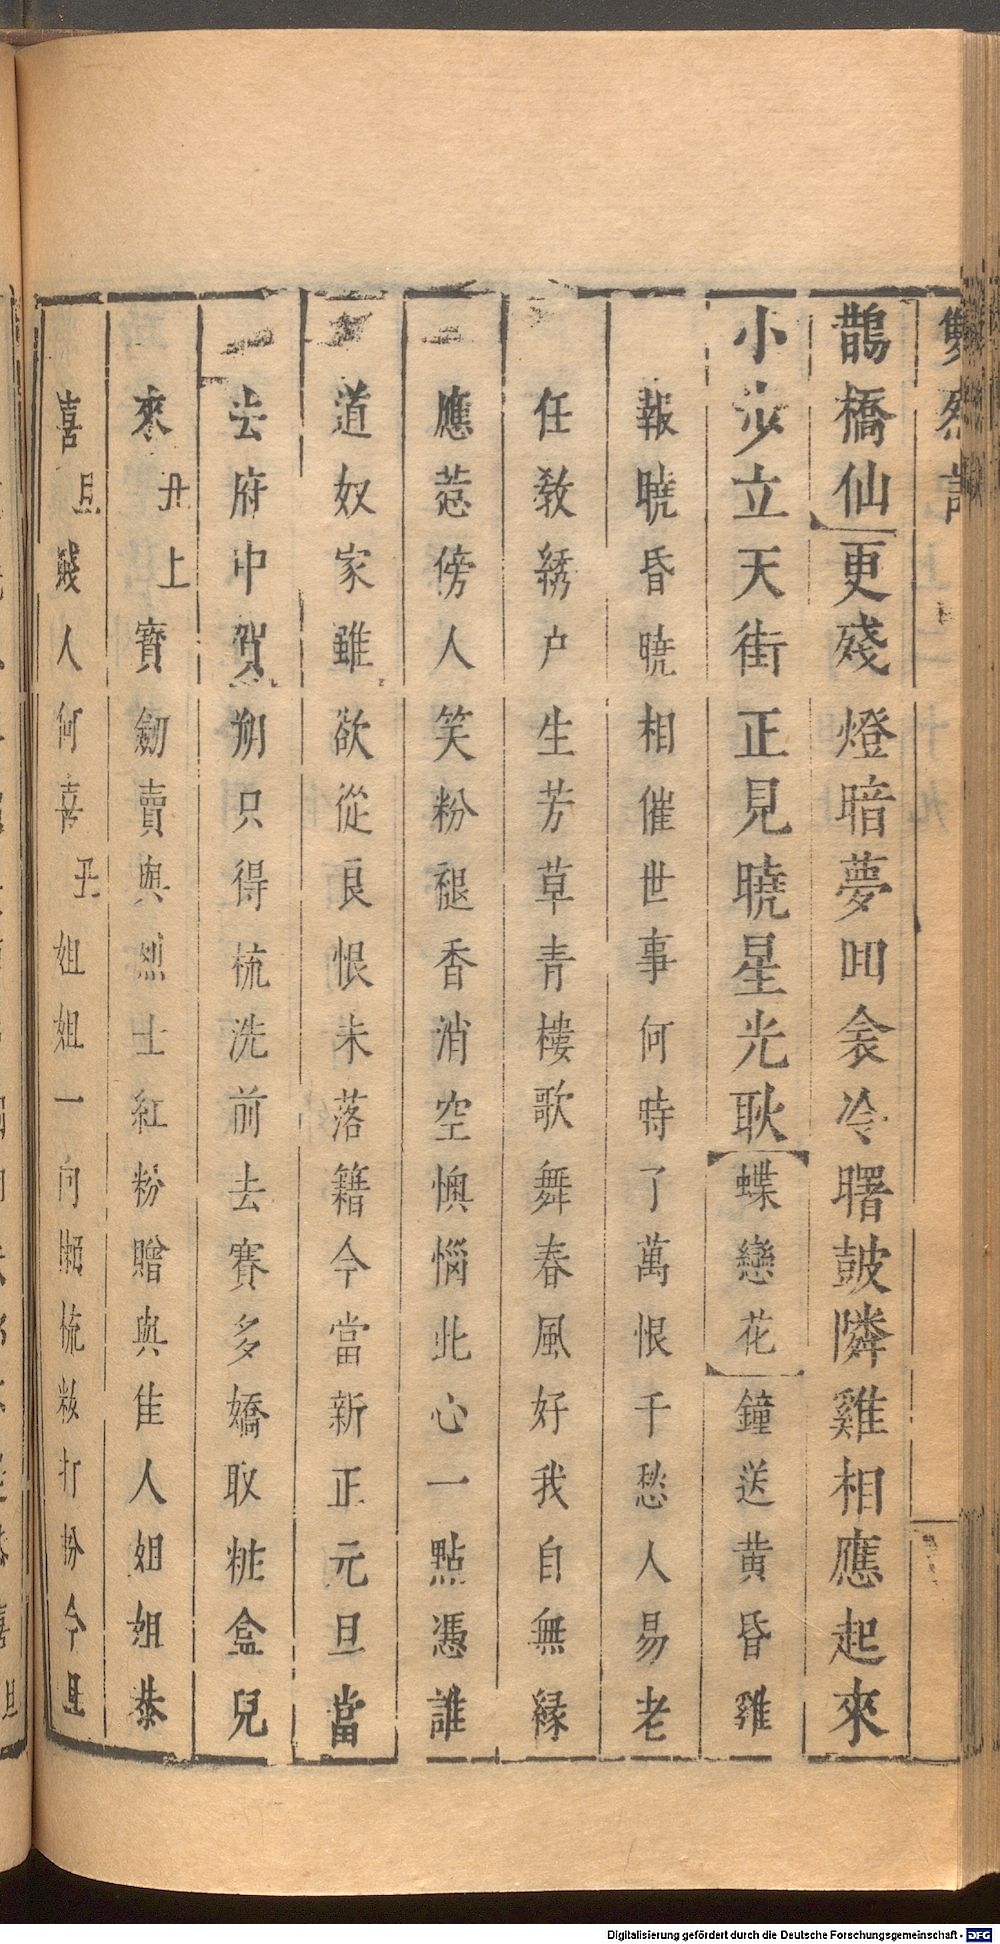 雙烈記
鵲橋仙更殘燈暗夢回衾冷曙皷隣雞相應起來
小步立天街正見曉星光耿蝶戀花鐘送黄昏雞
報曉昏曉相催世事何時了萬恨千愁人易老
任教綉户生芳草青樓歌舞春風好我自無緣
應惹傍人笑粉褪香消空懊惱此心一點憑誰
道奴家雖欲從良恨未落籍今當新正元旦當
去府中賀朔只得梳洗前去賽多嬌取粧盒兒
來丑上寳劒賣與烈士紅粉贈與佳人姐姐恭
喜旦賤人何喜丑姐姐一向懶梳粧打扮今旦
Digitalisierung gefördert durch die Deutsche Forschungsgemeinschaft - DFG